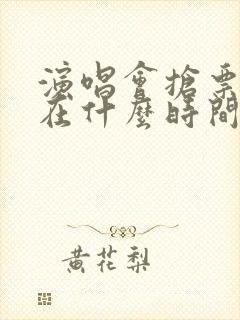 演唱會搶票
在什麼時間
黃花梨